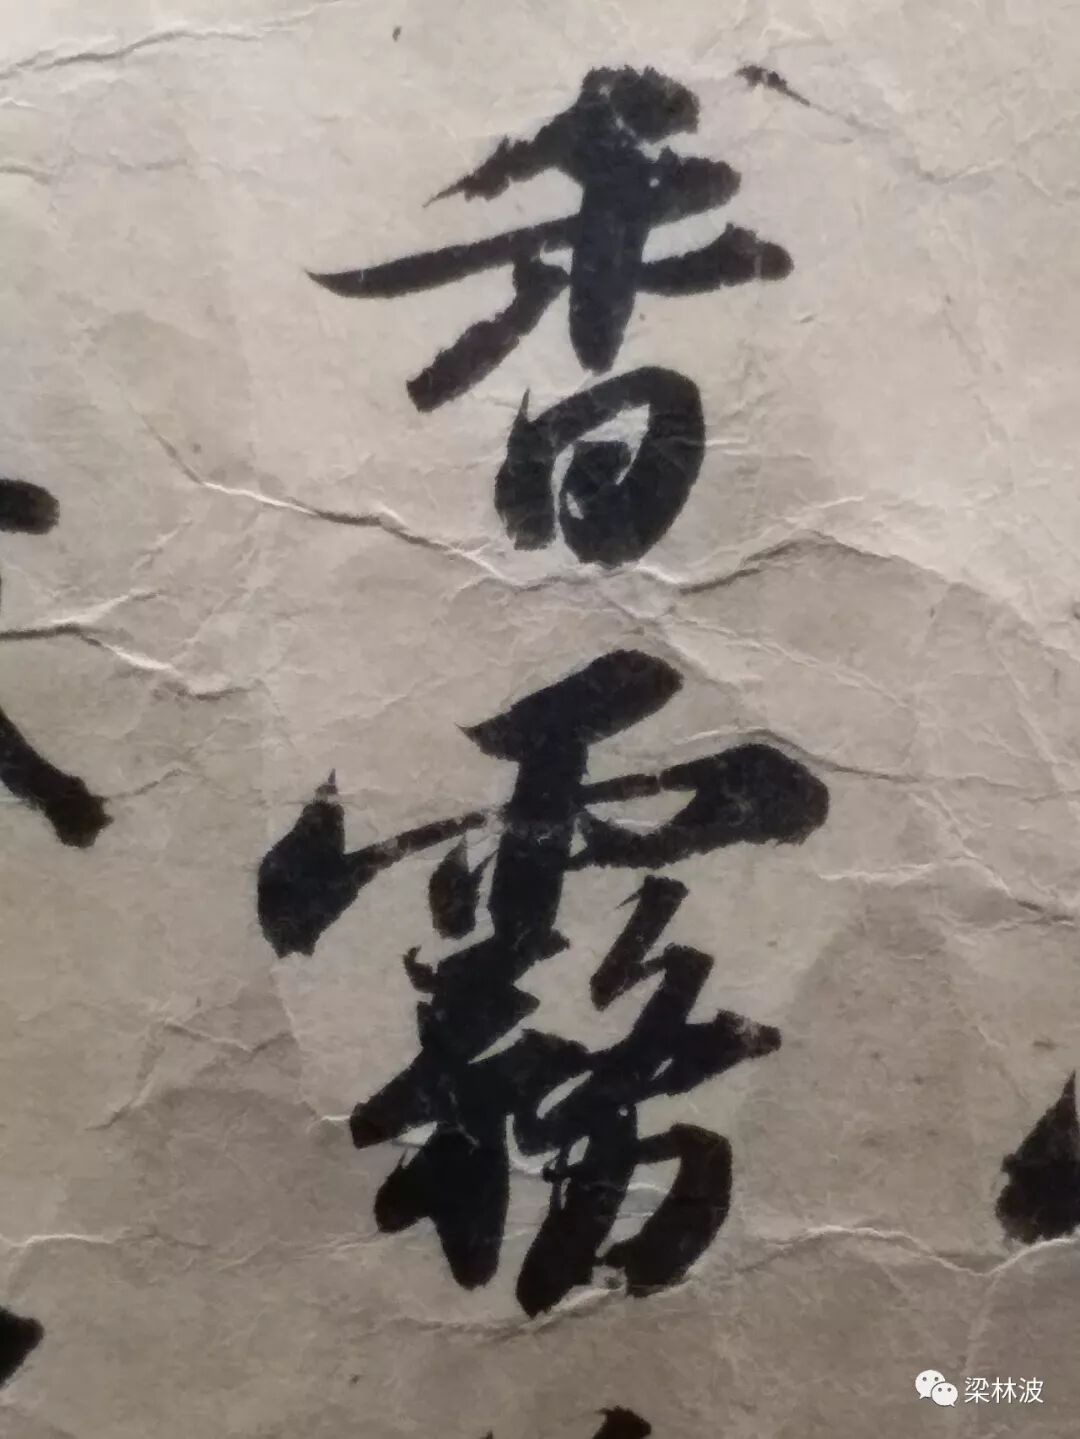 香霧
梁林波